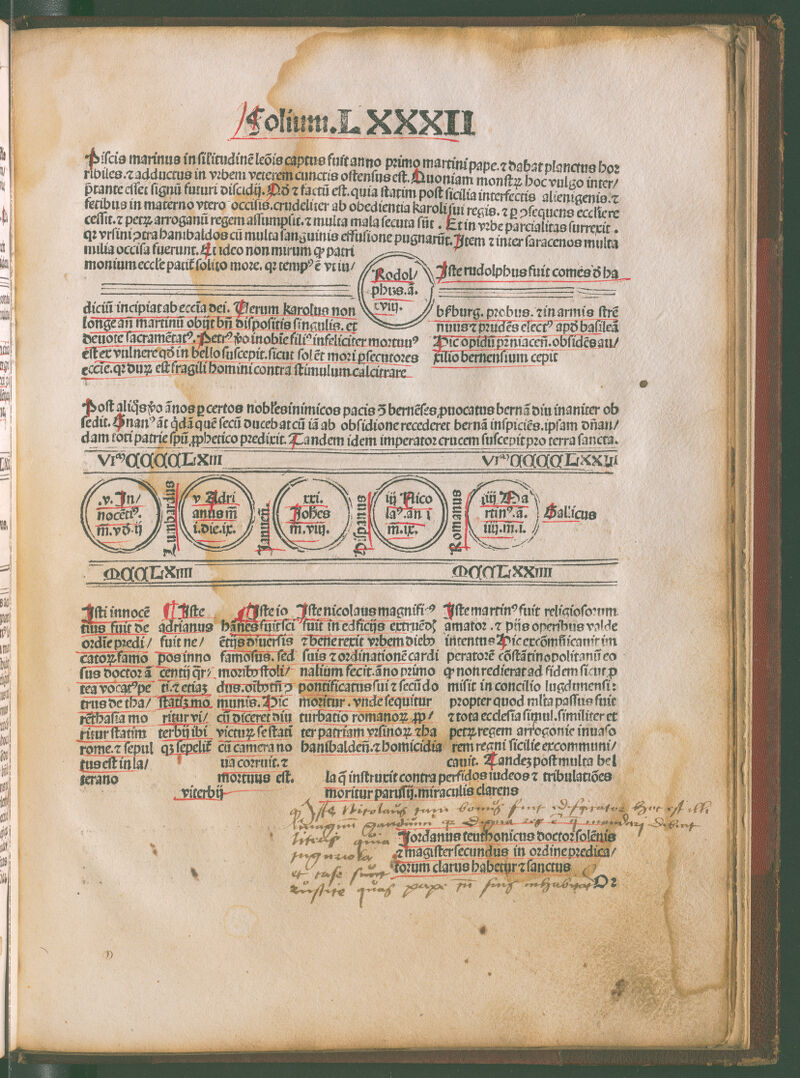 Folium. LXXXII
Piscis marinus in silitudinē leōis captus fuit anno primo martini pape. ⁊ dabat planctus hor
ribiles. ⁊ adductus in vrbem veterem cunctis ostensus est. Quoniam monstꝝ hoc vulgo inter/
p̄tante esset signū futuri discidij. Qd̄ ⁊ factū est. quia statim post sicilia interfectis alienigenis. ⁊
fetibus in materno vtero occisis. crudeliter ab obedientia karoli sui regis. ⁊ ꝑ ꝯsequens ecclie re
cessit. ⁊ petꝝ arroganū regem assumpsit. ⁊ multa mala secuta sūt. Et in vrbe parcialitas surrexit.
qꝫ vrsini ꝯtra hanibaldos cū multa sanguinis effusione pugnarūt. Item ⁊ inter saracenos multa
milia occisa fuerunt. Et ideo non mirum qꝫ patri
monium ecclīe patit̄ solito more. qꝫ tempꝰ ē vt iu/
Rodol/
phus. ā.
xviij.
Iste rudolphus fuit comes d̄ ha
diciū incipiat ab eccīa dei. Verum karolus non
longe an martinū obijt bn̄ dispositis singulis. et
deuote sacramētatꝰ. Petrꝰ v̄o inobīe filiꝰ infeliciter mortuuꝰ
est ex vulnere qd̄ in bello suscepit. sicut solēt mori ꝑsecutores
eccīe. qꝫ duꝝ est fragili homini contra stimulum calcitrare
bſburg. probus. ⁊ in armis strē
nuus ⁊ prudēs electꝰ apd̄ basileā
Hic opidū pꝛniacen̄. obsidēs au/
xilio bernensium cepit
Post aliqͥs v̄o ānos ꝑ certos nobīles inimicos pacis ꝯ bernēses ꝓuocatus bernā diu inaniter ob
sedit. Gnanꝰ āt qd̄ā quē secū duceb at cū iā ab obsidione recederet bernā inspiciēs. ipsam dn̄au/
dam toti patrie spū ꝓphetico predixit. Tandem idem imperator crucem suscepit pro terra sancta.
VIᵐCCCCLXIII
VIᵐCCCCLXXIII
.v. In/
nocētiꝰ.
m̄. v d̄. ij
Lumbardus
v Adri
anus m̄
i. die. ix.
Januen̄.
xxi.
Johēs
m̄. viij.
Hispanus
iij Nico
laꝰ. an i
m̄. ix.
Romanus
iiij Ma
rtinꝰ. ā.
iiij. m̄. i.
Gallicus
MCCLXIIII
MCCLXXIIII
Isti innocē
tius fuit de
ordīe predi/
catoꝝ famo
sus doctor ā
tea vocatꝰ pe
trus de tha/
rēthasia mo
ritur statim
rome. ⁊ sepul
tus est in la/
terano
Iste
adrianus
fuit ne/
pos inno
centij qͣr/
ti. ⁊ etiaꝫ
statiꝫ mo
ritur vi/
terbij ibi
qꝫ sepelit̄
viterbij
Iste io
hānes fuit sci
ētijs diuersis
famosus. sed
moribꝰ stoli/
dus. oībꝰ tn̄ ꝯ
munis. Hic
cū diceret diu
victuꝝ se stati
cū camera no
ua corruit. ⁊
mortuus est.
Iste nicolaus magnificꝰ
fuit in edficijs extruēd̄
⁊ bene rexit vrbem diebꝰ
suis ⁊ ordinationē cardi
nalium fecit. āno primo
pontificatus sui ⁊ secūdo
moritur. vnde sequitur
turbatio romanoꝝ ꝓp/
ter patriam vrsinoꝝ ⁊ ha
hanibalden̄. ⁊ homicidia
Iste martinꝰ fuit religiosorum
amator. ⁊ pijs operibus valde
intentus Hic excōmūicauit im
peratorē cōstātinopolitanū eo
qꝫ non redierat ad fidem sicut ꝓ
misit in concilio lugdunensi:
propter quod mīta passus fuit
⁊ tota ecclesia simul. similiter et
petꝝ regem arrogonie inuaso
rem regni sicilie excommuni/
cauit. Tandeꝫ post multa bel
la q̄ instruxit contra perfidos iudeos ⁊ tribulatiōes
moritur parusij. miraculis clarens
Iste Nicolaus
Jordanus teuthonicus doctor solēnis
⁊ magister secundus in ordine predica/
torum clarus habetur ⁊ sanctus